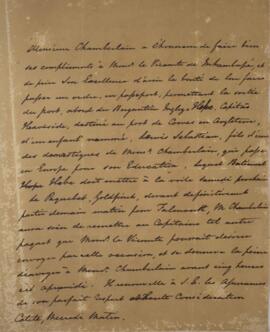 Monsieur Chamberlain a l'honneur de faire bien
ses complimens à Monsr. le Vicomte de Inhambupe, et
de prier Son Excellence d'avoir la bonté de lui faire
passer un ordre, ou passeport, permettant la sortie
du port, abord du Brigantin Anglez Hope Capitão
destiné au port de Cowes en Angleterre,
d'un enfant nommé, Lewis Sebastian, fils d'un
des domestiques de Monsr. Chamberlain, qui passe
en Europe pour son Education, lequel Batiment
Hope doit mettre à la voile samedi prochain
Le Paquebot Goldfinch, devant definitivement
partir demain matin pour Falmouth, M. Chamberlain
aura soin de remettre au Capitaine tel autre
paquet que Monsr. le Vicomte pourroit désirer
envoyer par celle occasion, et se donnera la peine
d'envoyer à Monsr. Chamberlain avant cinq heures
cet après midi. Il renouvelle à S. E. les assurances
de son parfait respect et Haute Consideration
Catete, Mercredi Matin.